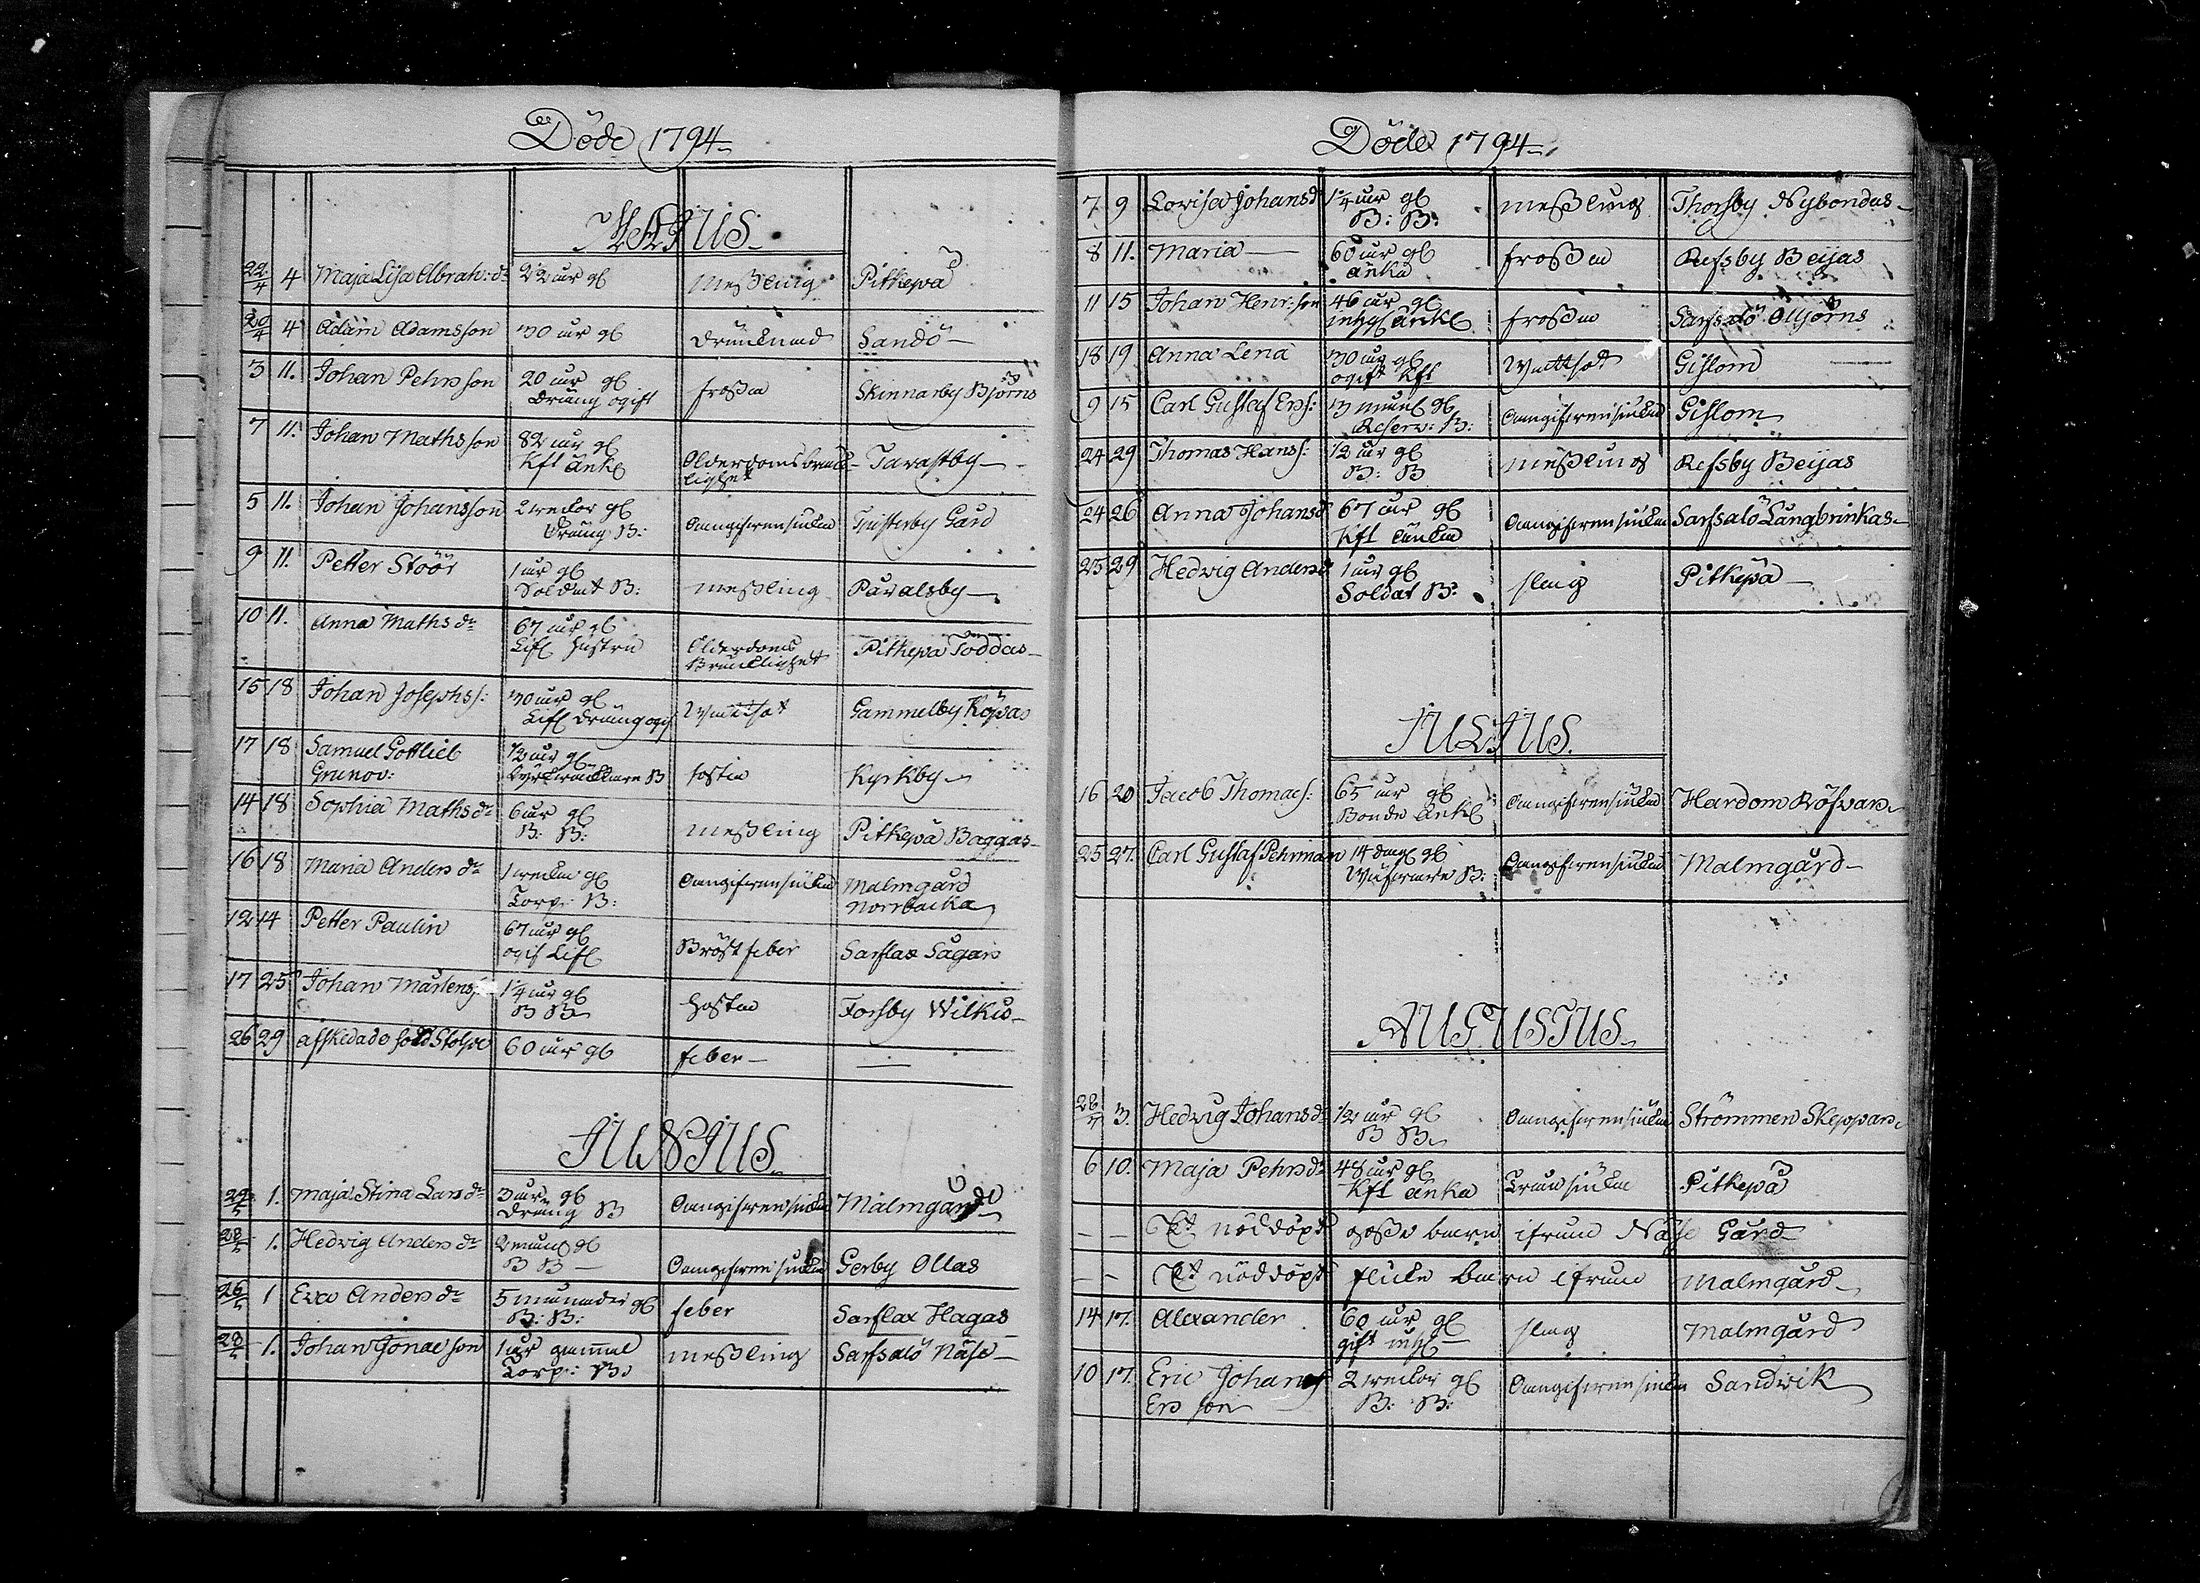 Döde 1794
MAJUS
22/4 4 Maja Lisa Abrah: dr 22 åhr gl Messling Pitkepä
20/4 4 Adam Adamsson 30 åhr gl drunknad Sandö
3 11. Johan Pehrsson 20 åhr gl frossa Skinnarby Björns
dräng ogift
7 11. Johan Mathsson 82 åhr gl
Kfl änkl Olderdoms bräck- Tavastby
lighet
5 11. Johan Johansson 2 veckor gl
dräng B: Oangifven siukd Tristerby Gård
9 11. Petter Stöör 1 åhr gl
Soldat B: messling Påvalsby
10 11. Anna Maths dr 67 åhr gl
hustru Olderdoms Pitkepä Toddas
Bräcklighet
15 18 Johan Josephs: 30 åhr gl
dräng ogif Wattsot Gammelby Köpas
17 18 Samuel Gottlieb 1/2 åhr gl
Grunov: B hosta Kyrkby
14 18 Sophia Maths dr 6 åhr gl
B: B: messling Pitkepä Baggas
16 18 Maria Anders dr 1 vecka gl
Torp. B: Oangifven siukd Malmgård
Norrbacka
12 14 Petter Paulin 67 åhr gl
ogif Bröst feber Sarflax Sågars
17 25 Johan Mårtens: 1/4 åhr gl
B B hosta Forsby Wilkus
26 29 afskedade sold Stolpe 60 åhr gl feber —
JUNIUS
29/5 1. Maja Stina Lars dr 3 åhr gl
dräng B Oangifven siukd Malmgård
28/5 1. Hedvig Anders dr 2 mån gl
B B Oangifven siukd Gerby Ollas
26/5 1 Eva Anders dr 5 månader gl
B: B: feber Sarflax Hagas
28/5 1. Johan Jonae son 1 åhr gammal
Torp: B: messling Sarfsalö Näse
Döde 1794
7 9 Lovisa Johansd 1/4 åhr gl
B: B: messling Thorsby Nybondas
8 11. Maria — 60 åhr gl
änka frossa Refsby Beijas
11 15 Johan Henr: son 46 åhr gl
inhys änkl frossa Sarfsalö Olljörns
18 19 Anna Lena 30 åhr gl
ogift Kfl Wattsot Gislom
9 15 Carl Gustaf Ers: 3 mån gl
Reserv: B: Oangifven siukd Gislom
24 29 Thomas Hans: 1/2 åhr gl
B: B messling Refsby Beijas
24 26 Anna Johansd 67 åhr gl
Kfl änka Oangifven siukd Sarfsalö Långbrinkas
25 29 Hedvig Andersd 1 åhr gl
Soldat B: slag Pitkepä
JULIUS.
16 20 Jacob Thomas: 65 åhr gl
Bonde änkl Oangifven siukd Hardom Röfvars
25 27. Carl Gustaf Pehrman 14 dag gl
B: Oangifven siukd Malmgård
AUGUSTUS
28/7 3. Hedvig Johans dr 1/2 åhr gl
B B Oangifven siukd Strömmen Skeppars
6 10. Maja Pehrs dr 48 åhr gl
Kfl änka Pitkepä
— — Ett nöddöpt gosse barn ifrån Näse Gård
— — Ett nöddöpt flicke barn ifrån Malmgård
14 17. Alexander 60 åhr gl
gift inhs slag Malmgård
10 17. Eric Johan 2 veckor gl
Ersson B: B: Oangifven siukd Sandvik